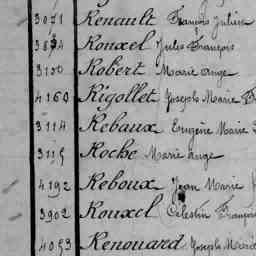 3071 Renault François Julien
3834 Rouxel Jules François
3130 Robert Marie ange
4160 Rigollet Joseph Marie
3114 Rebaux Eugène Marie
3115 Roche Marie ange
4192 Reboux Jean Marie
3902 Rouxel Célestin François
4053 Renouard Joseph Marie